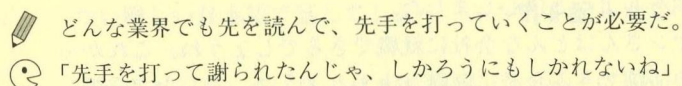 どんな業界でも先を読んで、先手を打っていくことが必要だ。
「先手を打って謝られたんじゃ、しかろうにもしかれないね」